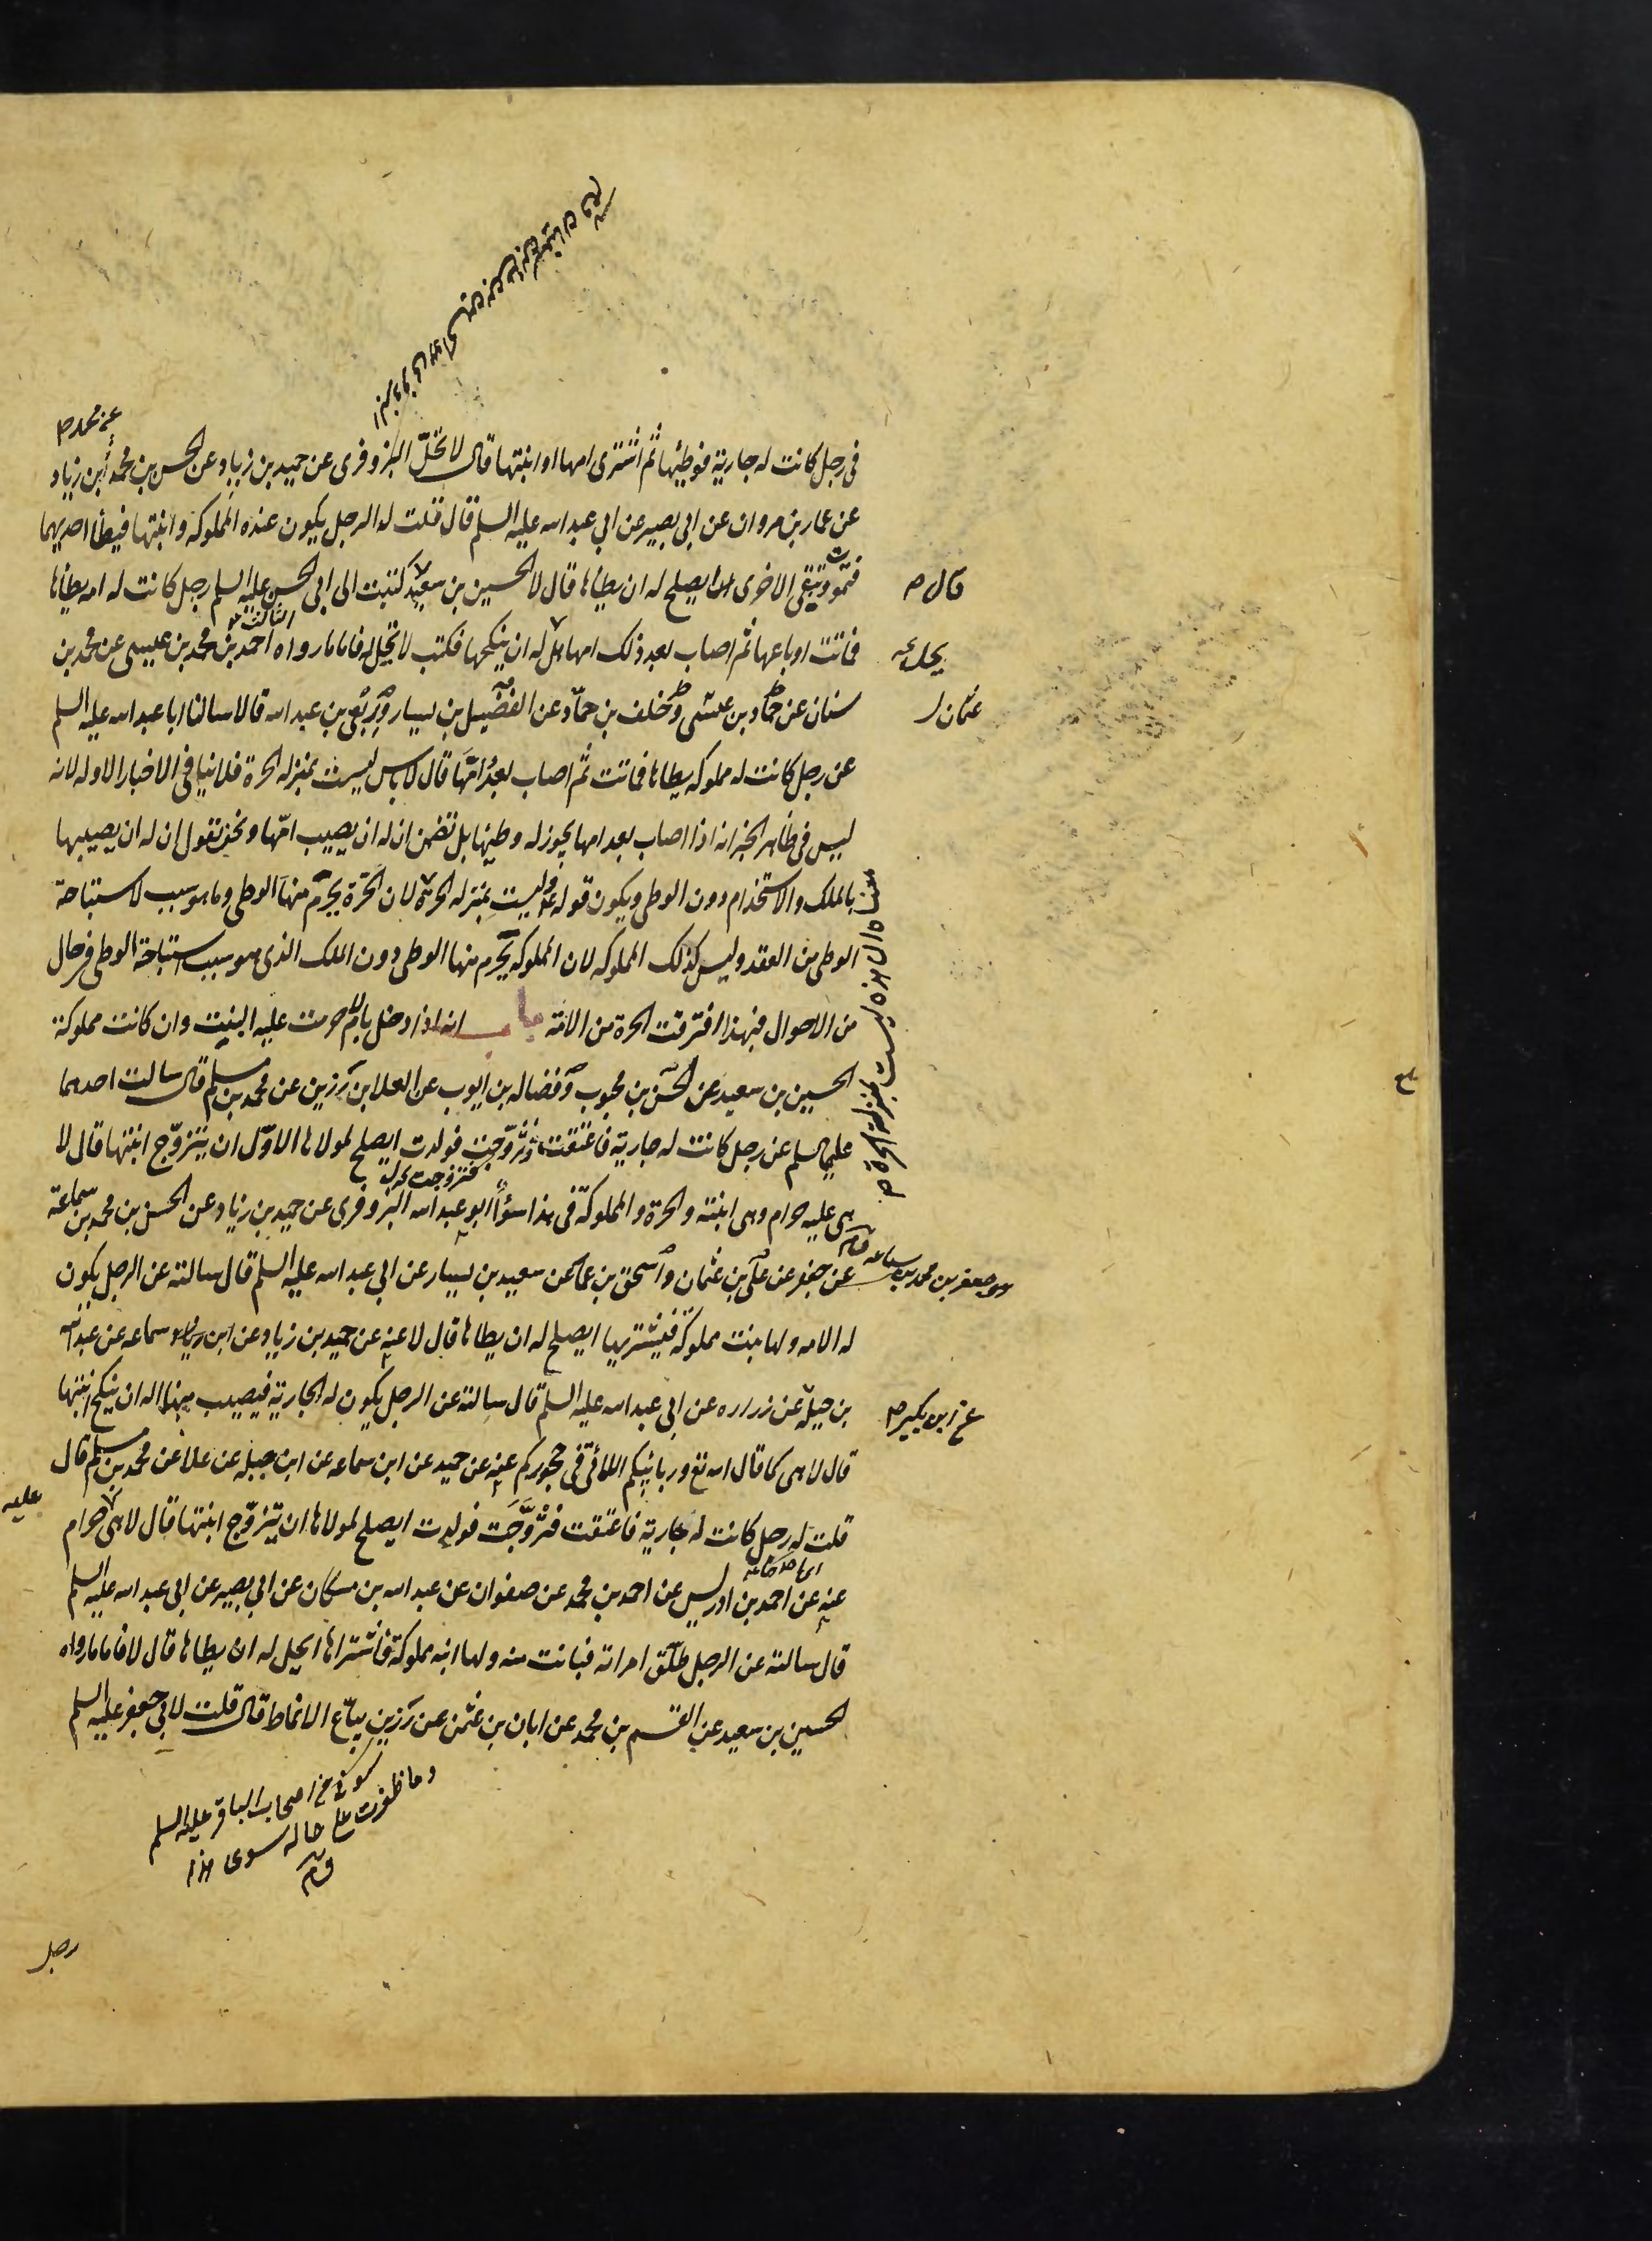 عن محمد صح
في رجل كانت له جارية فوطئها ثم اشترى امها او ابنتها قال لا تحلّ البزوفرى عن حميد بن زياد عن الحسن بن محمد ابن زياد
عن عمار بن مروان عن ابي بصير عن ابي عبد الله عليه السلم قال قلت له الرجل يكون عنده المملوكة وابنتها فيطأ احديهما
فتموت وتبقى الاخرى ايصلح له ان يطأها قال لا الحسين بن سعيد كتبت الى ابي الحسن عليه السلم رجل كانت له امه يطأها
قال صح
فماتت او باعها ثم اصاب بعد ذلك امها هل له ان ينكحها فكتب لا تحل له فاما ما رواه احمد بن محمد بن عيسى عن محمد بن
يحل
سنان عن حماد بن عيسى وخلف بن حمّاد عن الفضيل بن يسار وربعى بن عبد الله قالا سالنا ابا عبد الله عليه السلم
عثمان ل
عن رجل كانت له مملوكه يطاها فماتت ثم اصاب بعدُ امّها قال لا باس ليست بمنزله الحرة فلا ينافى الاخبار الاوله لانه
ليس في ظاهر الخبر انه اذا اصاب بعد امها يجوز له وطيها بل تضمن ان له ان يصيب امّها ونحن نقول ان له ان يصيبها
بالملك والاستخدام دون الوطى ويكون قوله وليست بمنزله الحرة لان الحرّة يحرم منها الوطى وما هو سبب لاستباحة
الوطى من العقد وليس كذلك المملوكه لان المملوكه يحرم منها الوطى دون الملك الذى هو سبب استباحة الوطى في حال
من الاحوال فبهذا افترقت الحرة من الامة باب انه اذا دخل بالام حرمت عليه البنت وان كانت مملوكة
الحسين بن سعيد عن الحسن بن محبوب وفضاله بن ايوب عن العلا بن رزين عن محمد بن مسلم قال سالت احدهما
عليهما السلم عن رجل كانت له جارية فاعتقت وتزوّجت فولدت ايصلح لمولاها الاوّل ان يتزوّج ابنتها قال لا
فتزوجت
هى عليه حرام وهى ابنته والحرة والمملوكة في هذا سوأ ابو عبد الله البزوفرى عن حميد بن زياد عن الحسن بن محمد بن سماعة
عن جعفر عن على بن عثمان واسحق بن عمار عن سعيد بن يسار عن ابي عبد الله عليه السلم قال سالته عن الرجل يكون
هو جعفر بن محمد بن سماعه
له الامه ولها بنت مملوكة فيشتريها ايصلح له ان يطاها قال لا عنه عن حميد بن زياد عن ابن سماعه عن عبد الله
بن جبلة عن زراره عن ابي عبد الله عليه السلم قال سالته عن الرجل يكون له الجارية فيصيب منها اله ان ينكح ابنتها
عن ابن بكير صح
قال لا هى كما قال الله تع وربائبكم اللاتى في حجوركم عنه عن حميد عن ابن سماعه عن ابن جبله عن علا عن محمد بن مسلم قال
قلت له رجل كانت له جارية فاعتقت فتزوّجت فولدت ايصلح لمولاها ان يتزوّج ابنتها قال لا هى حرام
عليه
عنه عن احمد بن ادريس عن احمد بن محمد عن صفوان عن عبد الله بن مسكان عن ابي بصير عن ابي عبد الله عليه السلم
قال سالته عن الرجل طلّق امراته فبانت منه ولها ابنه مملوكة فاشتراها ايحل له ان يطاها قال لا فاما ما رواه
الحسين بن سعيد عن القسم بن محمد عن ابان بن عثمن عن رزين بيّاع الانماط قال قلت لابي جعفر عليه السلم
كوفي من اصحاب الباقر عليه السلم
وما ظفرت على حاله سوى هذا
رجل